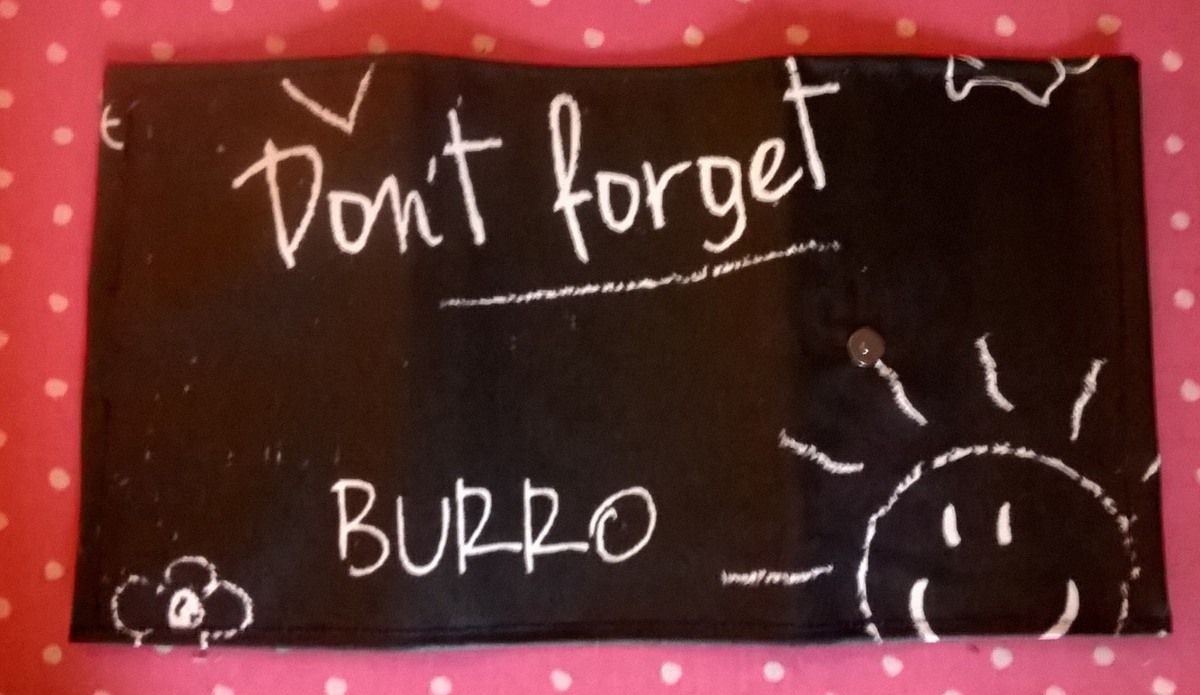 Don't forget
BURRO